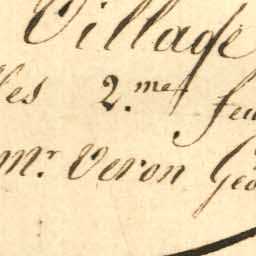 Village
les 2.me feu
mr. Veron Géo